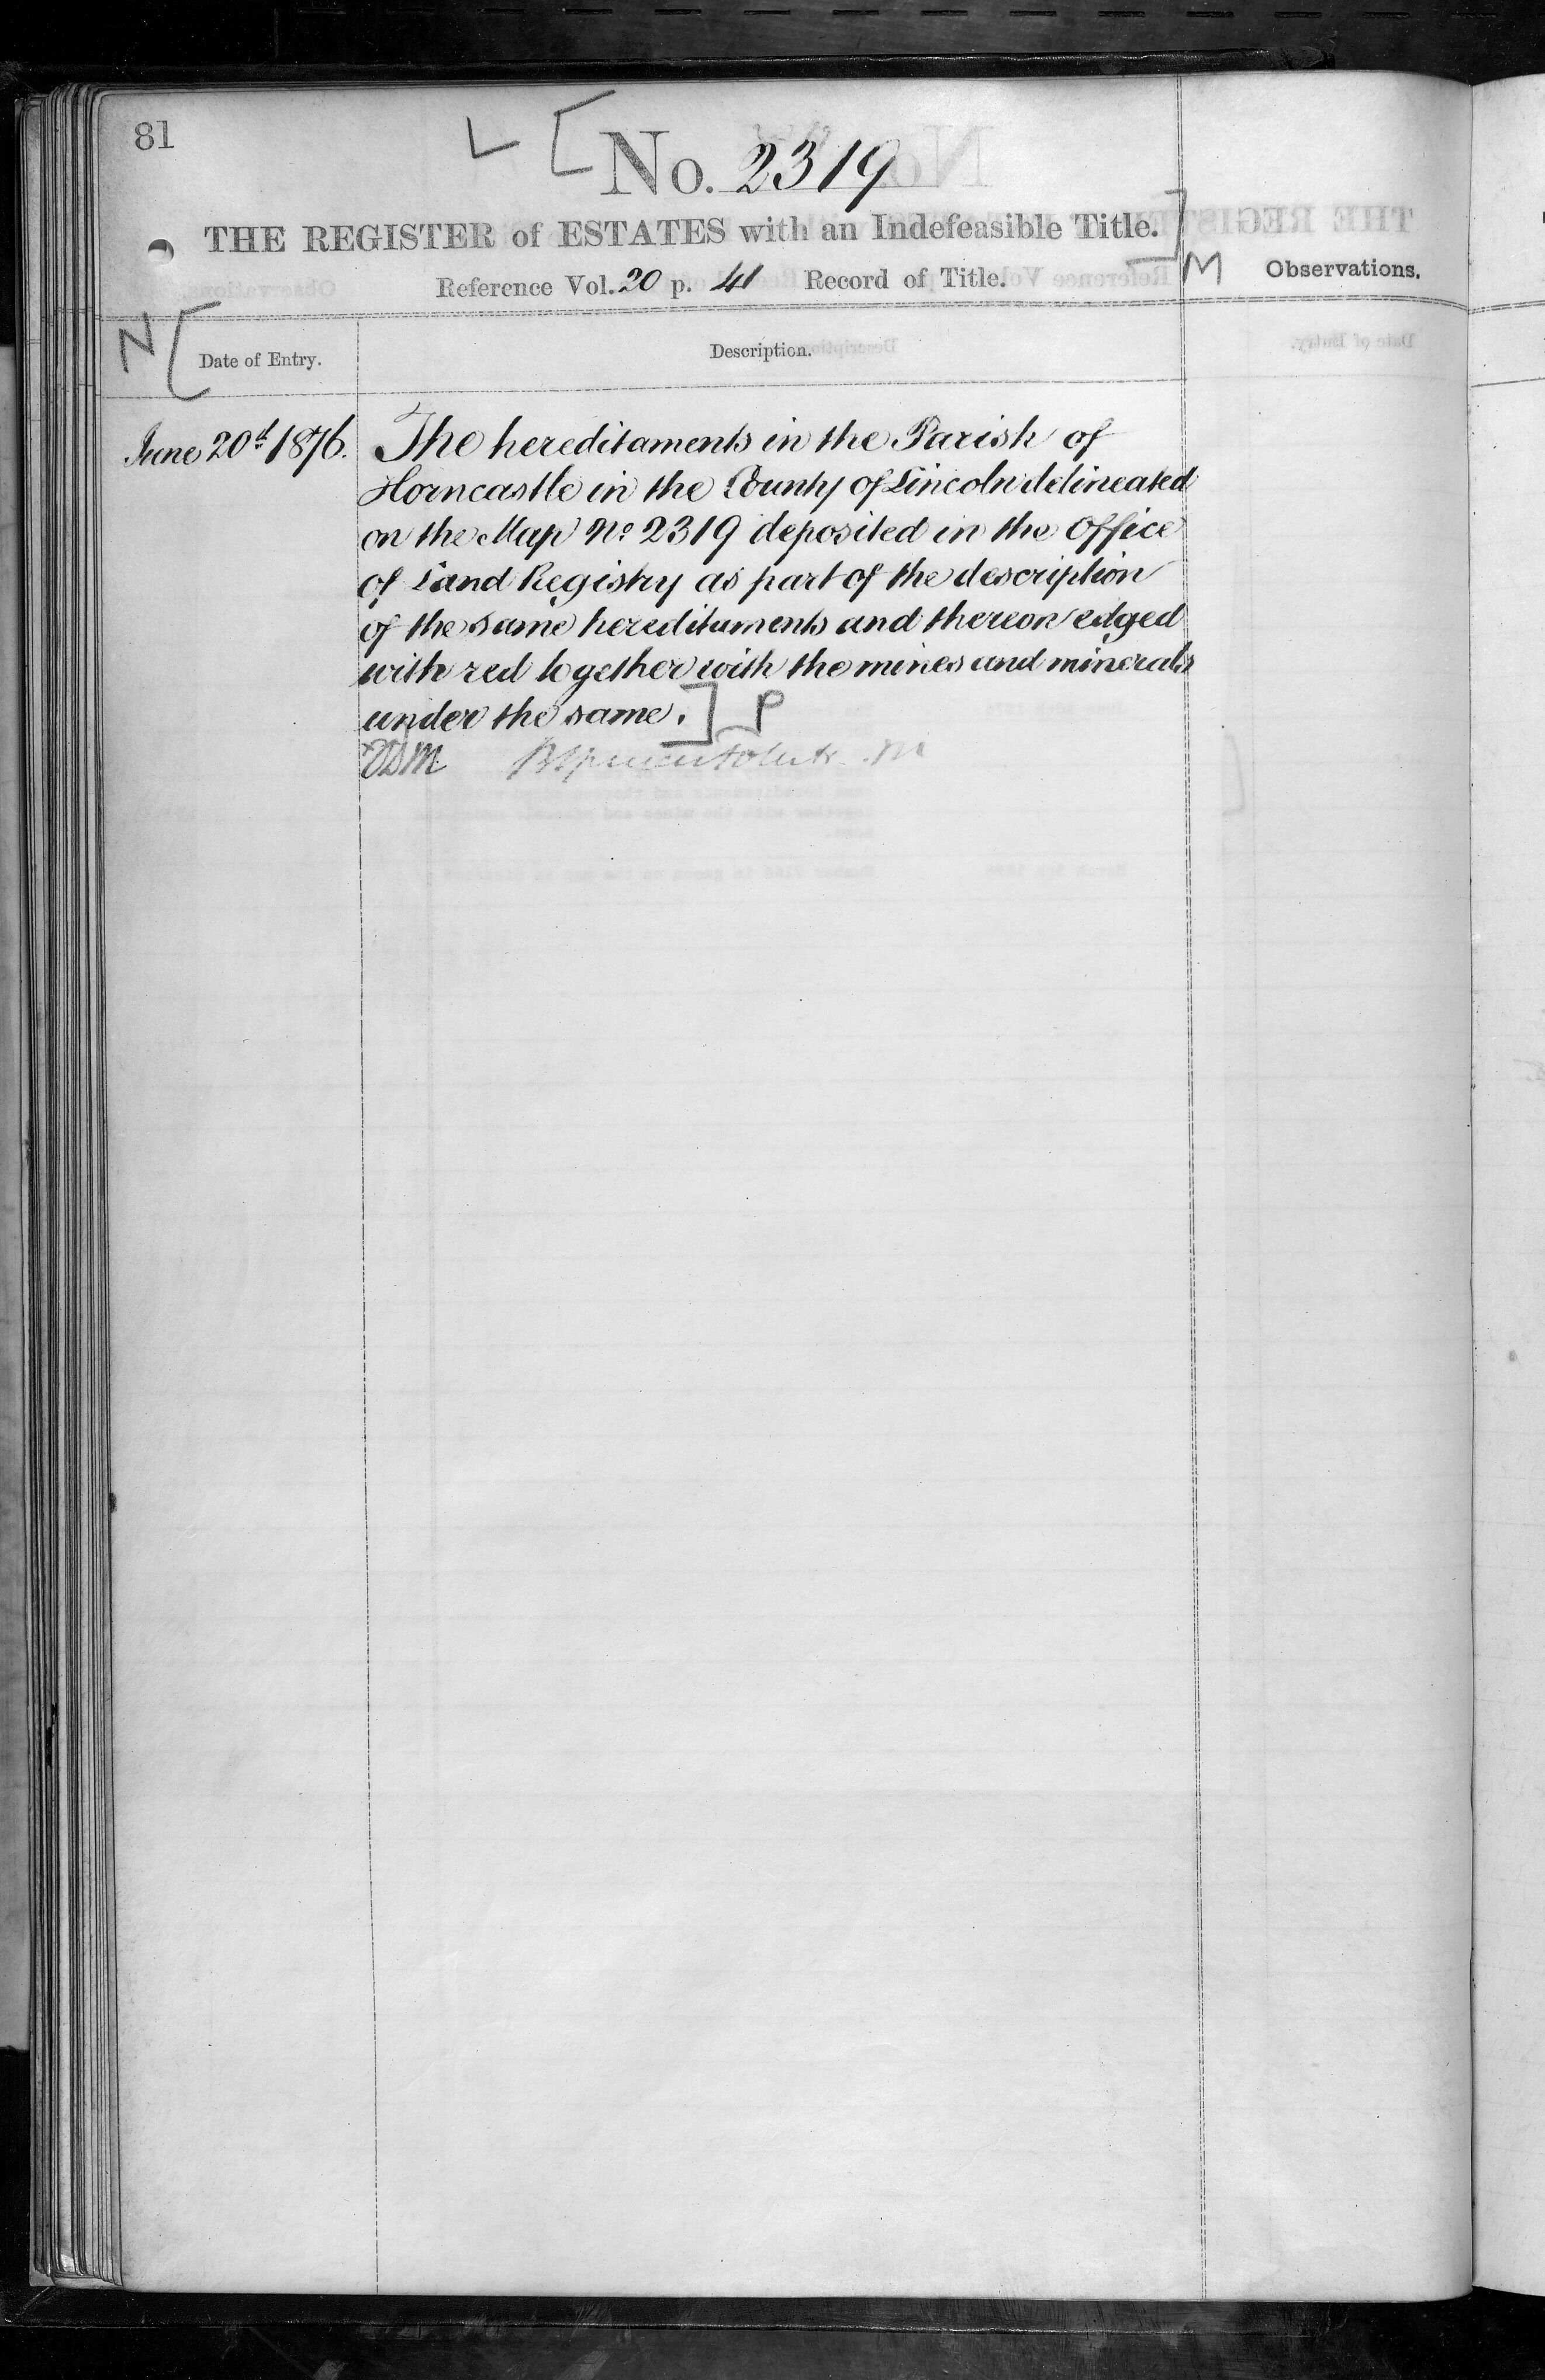 81
L [
No. 2319
THE REGISTER of ESTATES with an Indefeasible Title. ]
Reference Vol. 20 p. 41 Record of Title. M
Observations.
N [
Date of Entry.
Description.
June 20th 1876.
The hereditaments in the Parish of
Horncastle in the County of Lincoln delineated
on the Map No 2319 deposited in the Office
of Land Registry as part of the description
of the same hereditaments and thereon edged
with red together with the mines and minerals
under the same. ] P